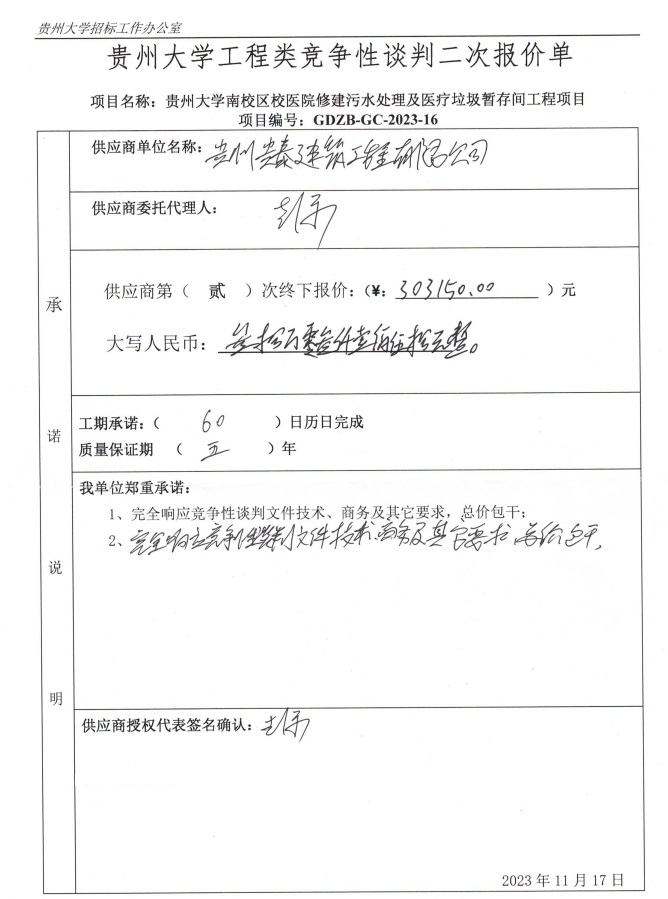 贵州大学招标工作办公室
贵州大学工程类竞争性谈判二次报价单
项目名称：贵州大学南校区校医院修建污水处理及医疗垃圾暂存间工程项目
项目编号：GDZB-GC-2023-16
供应商单位名称：贵州 建筑工程有限公司
供应商委托代理人：
供应商第（ 贰 ）次终下报价：（¥：303150.00 ）元
大写人民币：叁拾万零叁仟壹佰伍拾元整。
工期承诺：（ 60 ）日历日完成
质量保证期 （ 五 ）年
我单位郑重承诺：
1、完全响应竞争性谈判文件技术、商务及其它要求，总价包干；
2、完全响应竞争性谈判文件技术、商务及其它要求，总价包干，
供应商授权代表签名确认：
承
诺
说
明
2023 年 11 月 17 日